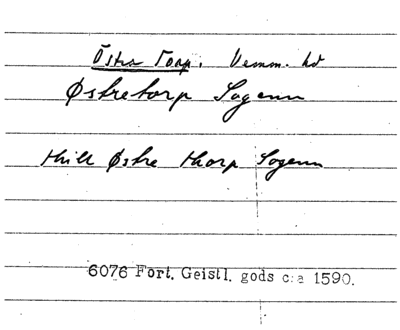 Östra Torp. Vemm. hd
Østretorp Sogenn
thill Østre thorp Sogenn
6076 Fort. Geistl. gods c:a 1590.